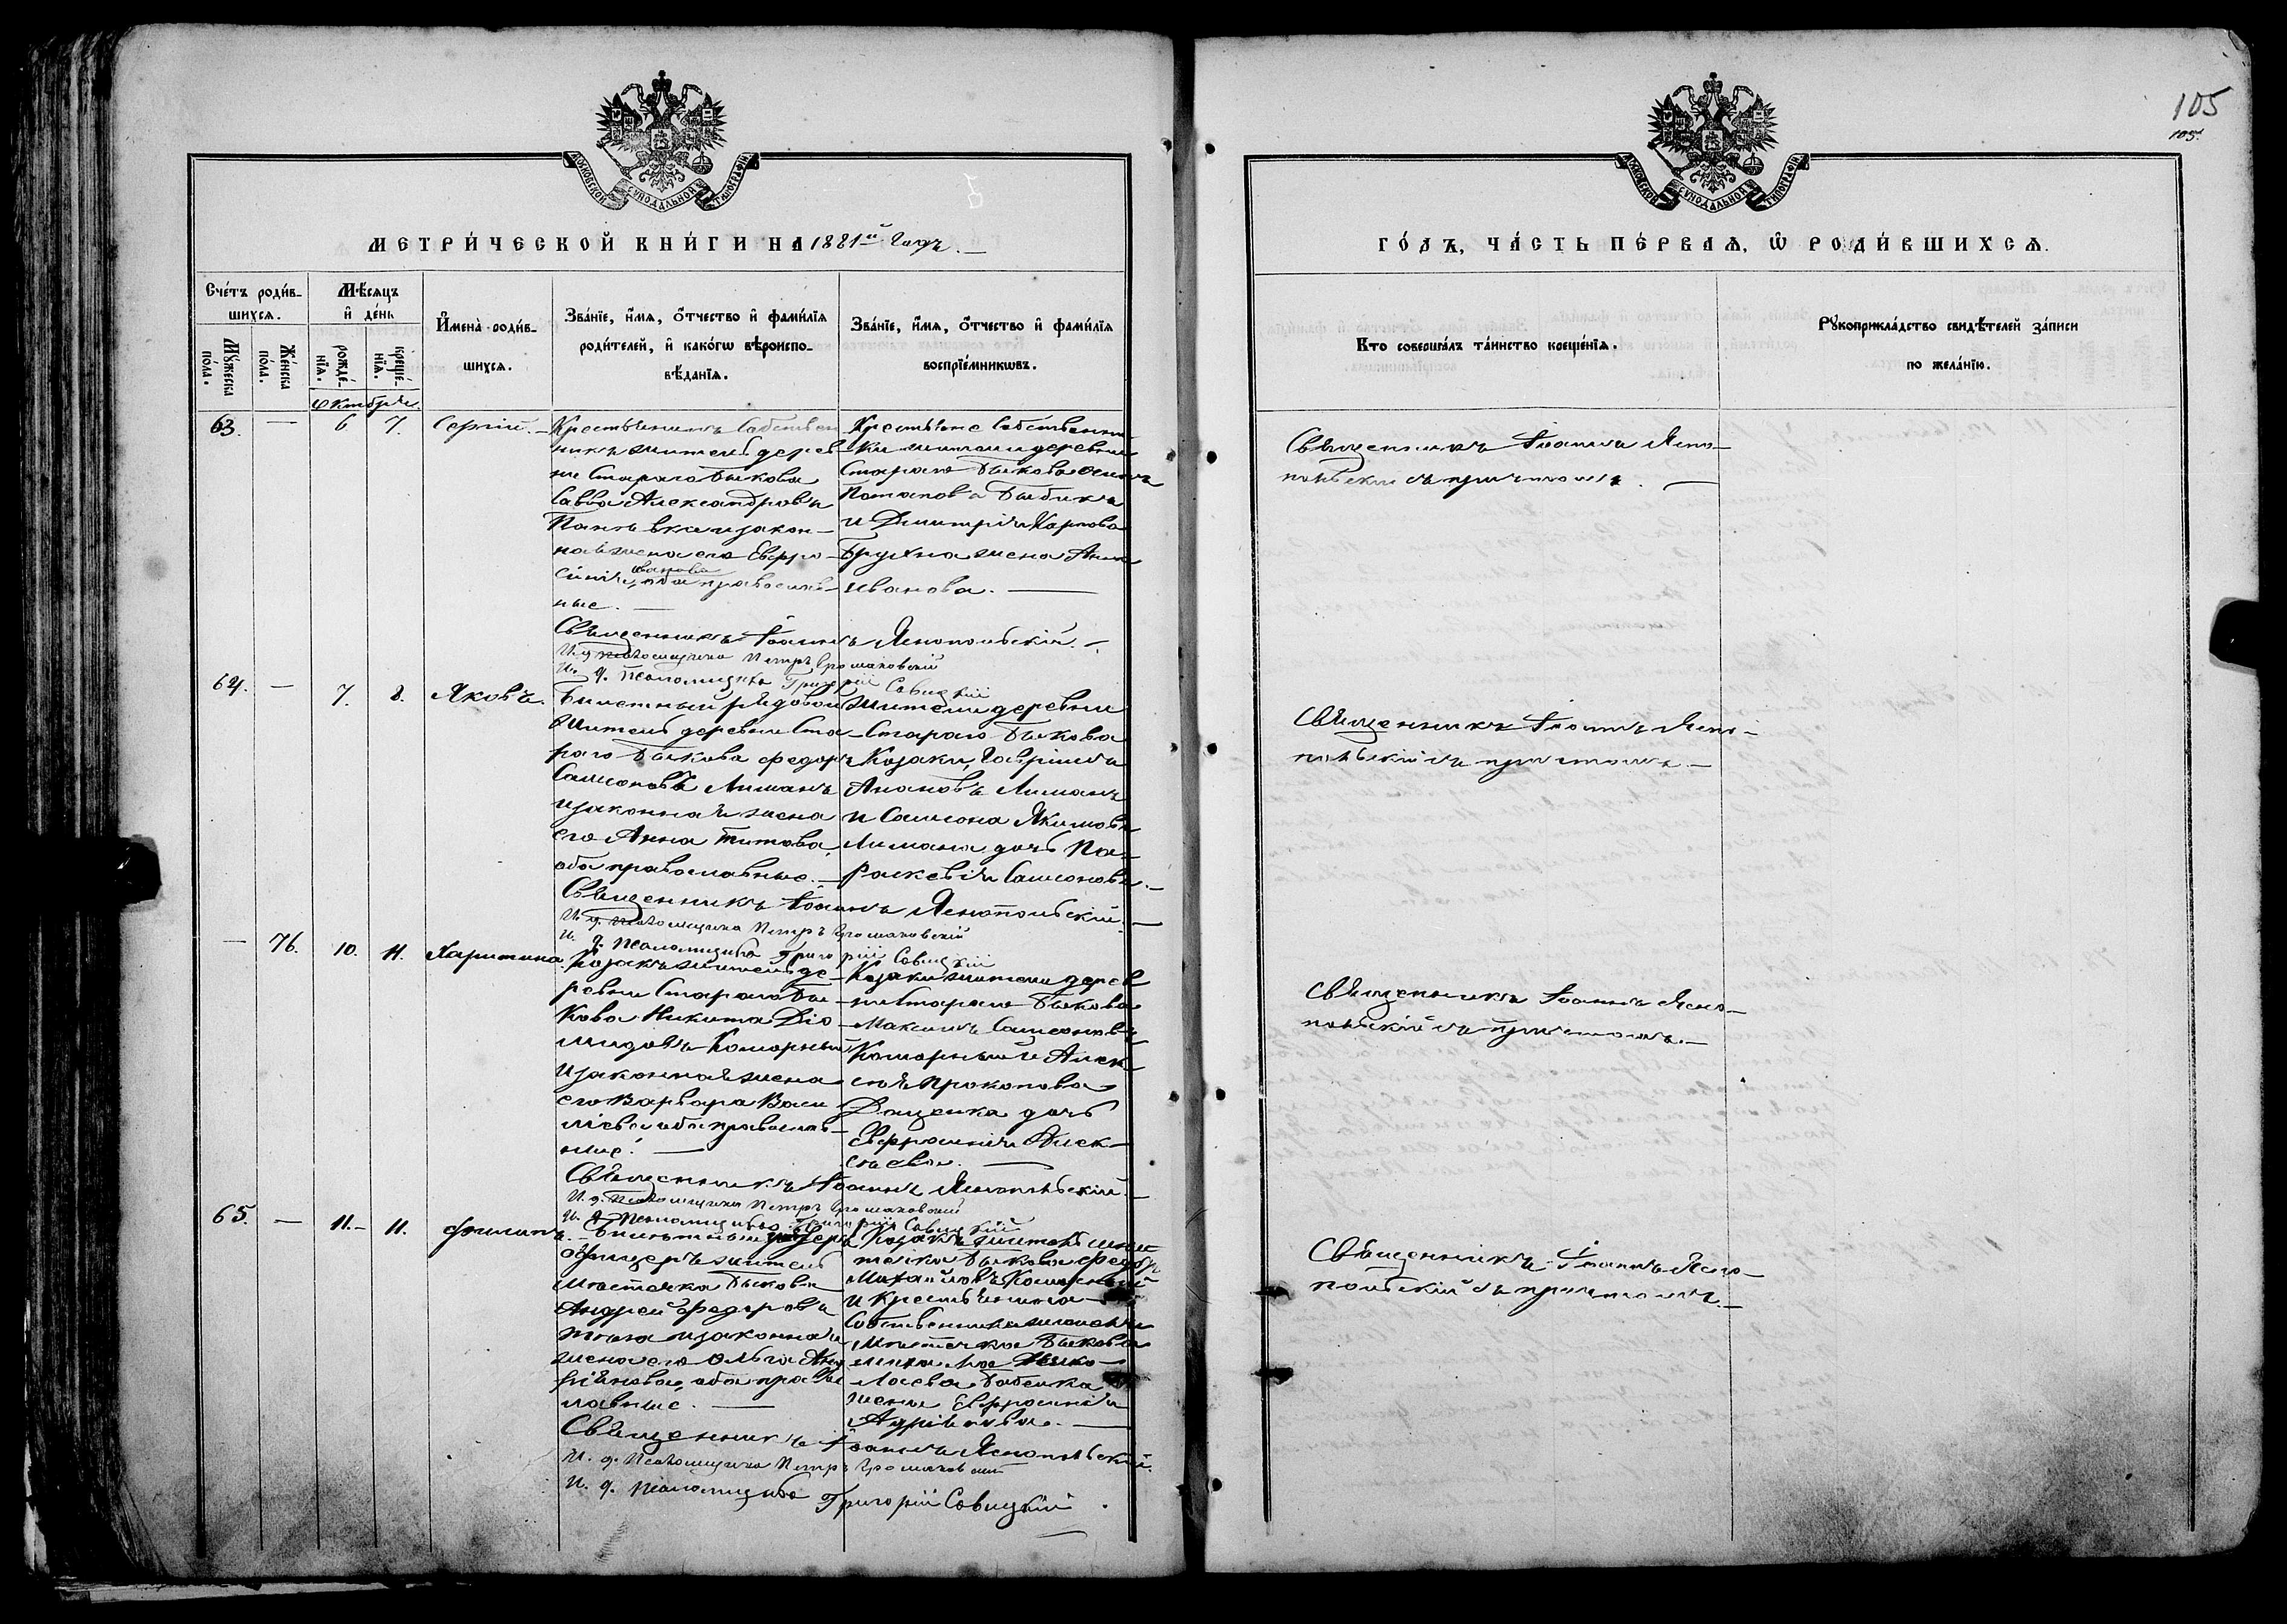 105
105.
МОСКОВСКОЙ СУНОДАЛЬНОЙ ТИПОГРАФІИ
МЕТРИ́ЧЕСКОЙ КНИ́ГИ НА 1881й Годъ.
Сче́тъ роди́вшихсѧ.
Мꙋ́жеска по́ла.
Же́нска по́ла.
Мѣ́сѧцъ и҆ де́нь
рожде́нїѧ.
креще́нїѧ.
Октября.
И҆мена̀ роди́вшихсѧ.
Зва́нїе, и҆́мѧ, ѻ҆́тчество и҆ фами́лїѧ
роди́телей, и҆ како́гѡ вѣроиспо-
вѣ́данїѧ.
Зва́нїе, и҆́мѧ, ѻ҆́тчество и҆ фами́лїѧ
воспрїе́мникѡвъ.
63. — 6. 7. Сергій.
Крестьянинъ Собствен
никъ житель дерев
ни Стараго Быкова
Савва Александровъ
и закон-
ная жена его Евфро-
Иванова
синія, оба православ-
ные. —
Крестьяне Собственни
ки жители деревни
Стараго Быкова
Потаповъ
и Димитрія Карпова
жена Анна
Иванова. —
Священникъ Іоаннъ Яснопольскій.
И. д. Псаломщика Петръ Громаковскій
И. д. Псаломщика Григорій Савицкій
64. — 7. 8. Яковъ.
Билетный рядовой
житель деревни Ста-
раго Быкова Федоръ
Самсоновъ Лиманъ
и законная жена
его Анна Титова,
оба православные. —
Жители деревни
Стараго Быкова
Козаки, Гавріилъ
Лиманъ
и Самсона Якимова
Лимана дочь Па-
раскевія Самсонова. —
Священникъ Іоаннъ Яснопольскій. —
И. д. Псаломщика Петръ Громаковскій
И. д. Псаломщика Григорій Савицкій
— 76. 10. 11. Харитина.
Козакъ житель де-
ревни Стараго Бы-
кова Никита Діо-
мидовъ Коморный
и законная жена
его Варвара Васи
ліева оба православ-
ные. —
Козаки жители дерев
ни Стараго Быкова
Максимъ Самсоновъ
Коморный и Алек
сѣя Прокопова
Даценка дочь
Евфросинія Алек-
сѣева. —
Священникъ Іоаннъ Яснопольскій. —
И. д. Псаломщика Петръ Громаковскій
И. д. Псаломщика Григорій Савицкій
65. — 11. 11. Филиппъ.
Билетный унтеръ
офицеръ житель
мѣстечка Быкова
Андрей Федоровъ
и законная
жена его Ольга Анд
ріянова, оба право
лавные. —
Козакъ житель мѣс
течка Быкова Федоръ
Михайловъ Коморный
и Крестьянина
Собственника жителя
мѣстечка Быкова
Нико-
лаева Бабенка
жена Евфросинія
Адріанова. —
Священникъ Іоаннъ Яснопольскій.
И. д. Псаломщика Петръ Громаковскій
И. д. Псаломщика Григорій Савицкій
МОСКОВСКОЙ СУНОДАЛЬНОЙ ТИПОГРАФІИ
ГО́ДЪ, ЧА́СТЬ ПЕ́РВАѦ, Ѡ҆ РОДИ́ВШИХСѦ.
Кто̀ соверша́лъ та́инство креще́нїѧ.
Рꙋкоприкла́дство свидѣ́телей за́писи
по жела́нїю.
Священникъ Іоаннъ Ясно-
польскій съ причтомъ. —
Священникъ Іоаннъ Ясно-
польскій съ причтомъ. —
Священникъ Іоаннъ Ясно-
польскій съ причтомъ. —
Священникъ Іоаннъ Ясно-
польскій съ причтомъ. —